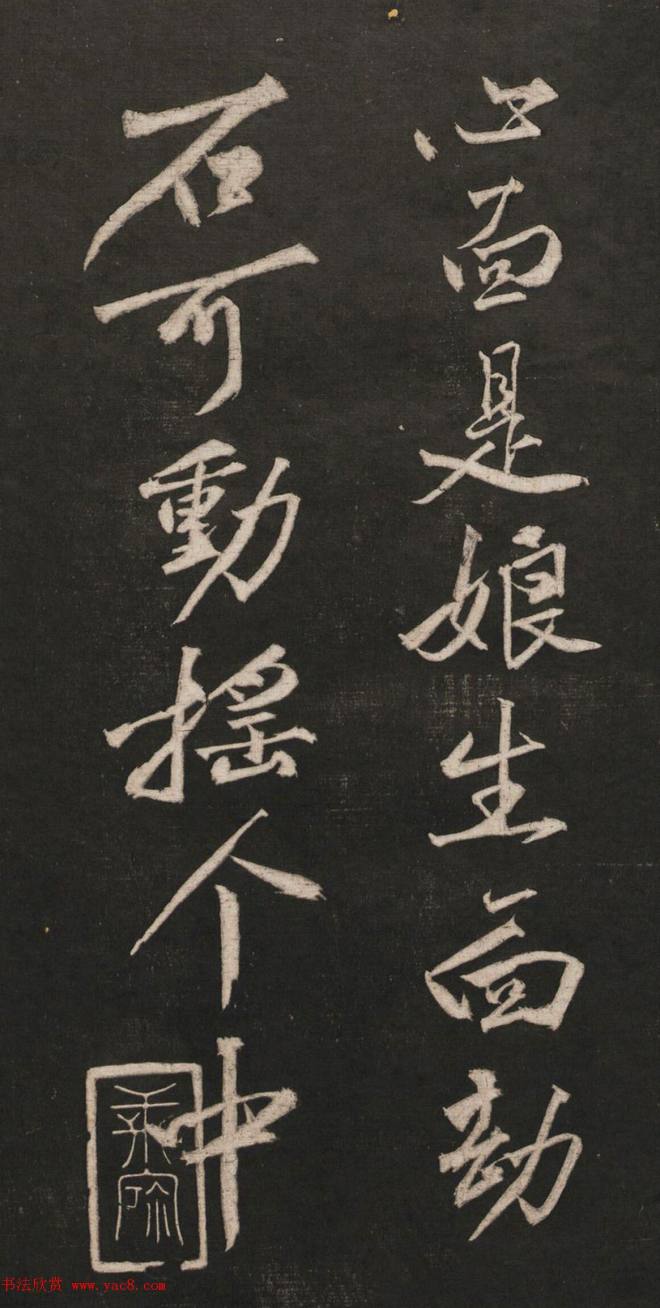 心面是娘生面劫
石可動搖个中
书法欣赏 www.yac8.com